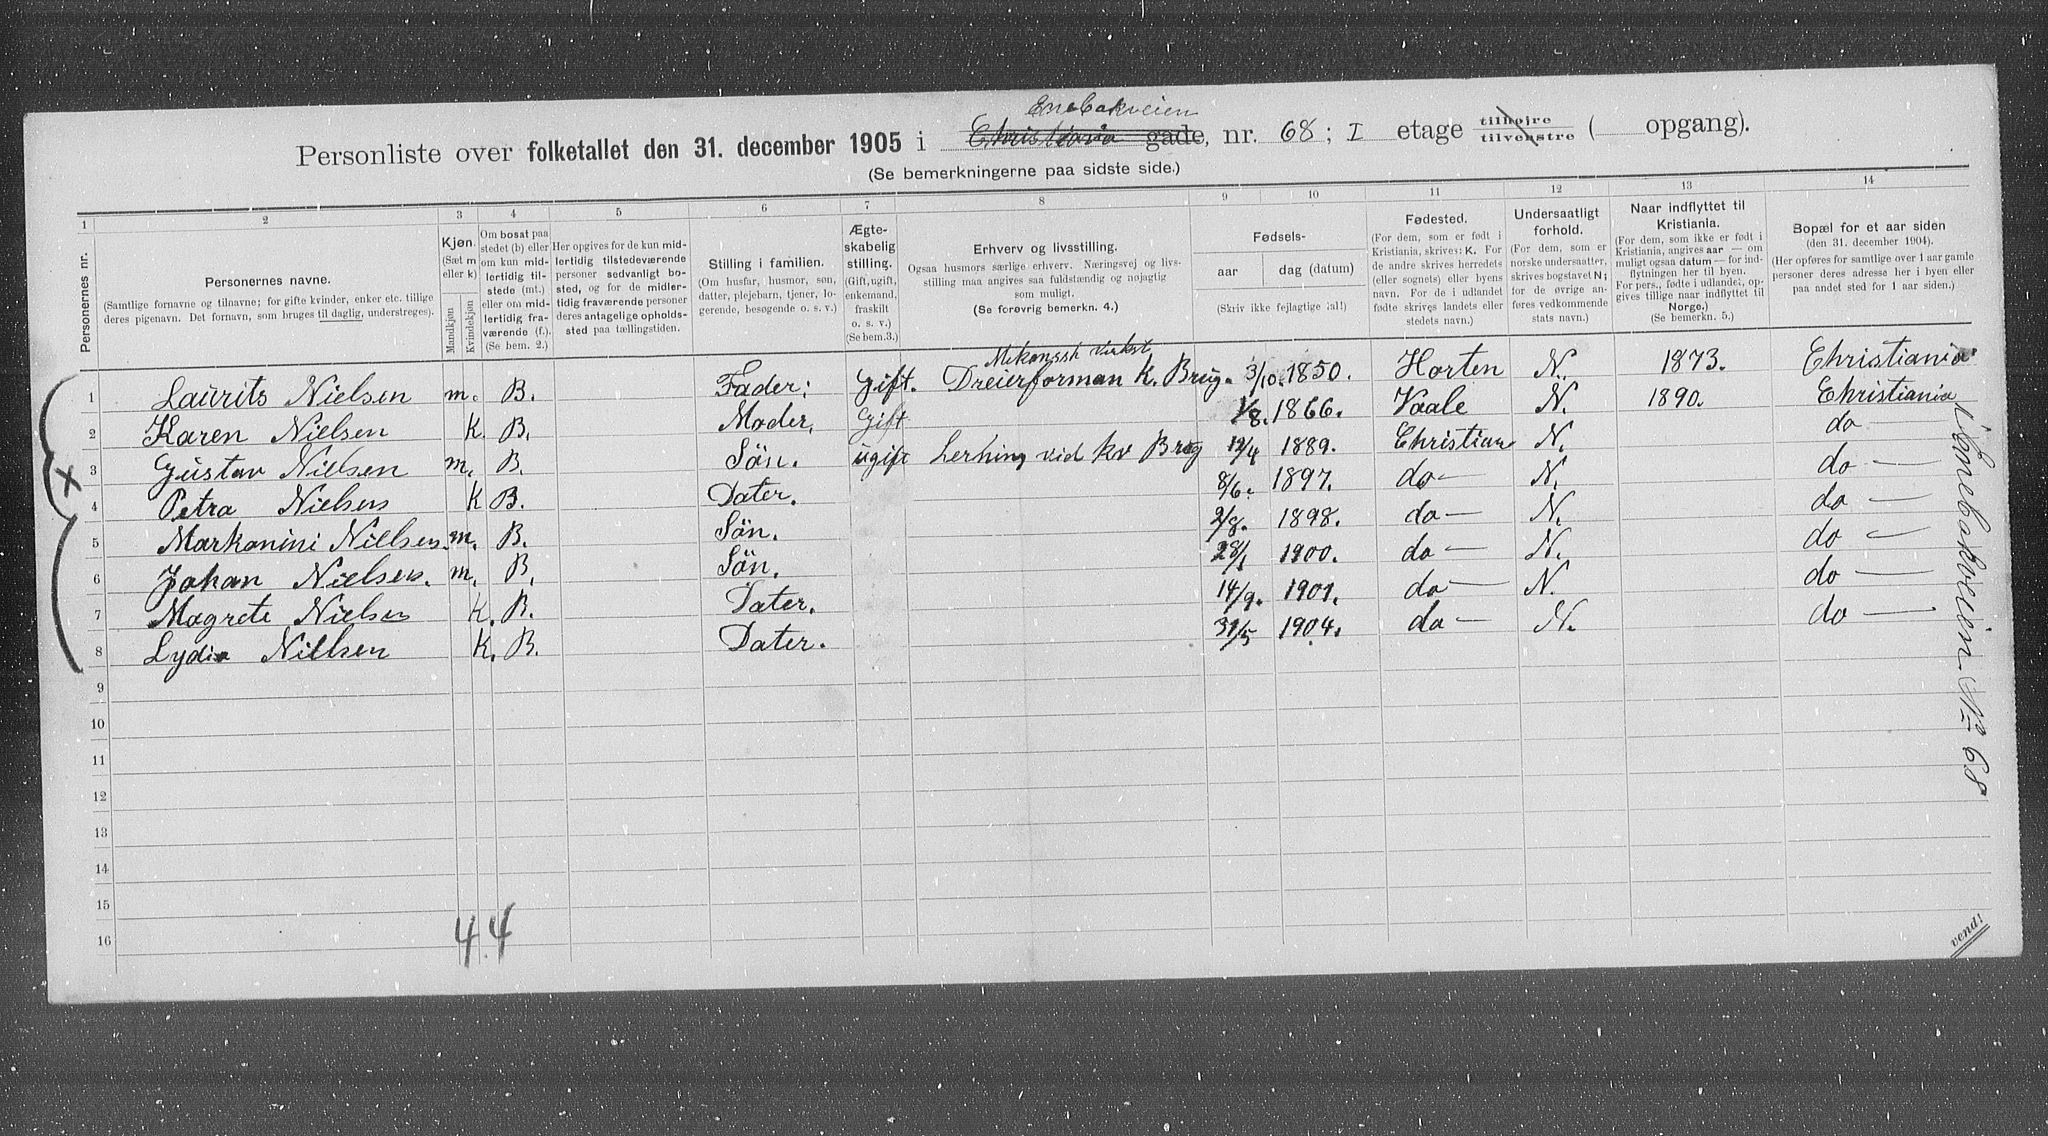 Enebakveien
Personliste over folketallet den 31. december 1905 i Christiania gade, nr. 68; I etage tilhøjre tilvenstre ( opgang).
(Se bemerkningerne paa sidste side.)
1 2 3 4 5 6 7 8 9 10 11 12 13 14
Personernes nr.
Personernes navne.
(Samtlige fornavne og tilnavne; for gifte kvinder, enker etc. tillige
deres pigenavn. Det fornavn, som bruges til daglig, understreges).
Kjøn.
(Sæt m
eller k)
Mandkjøn
Kvindekjøn
Om bosat paa
stedet (b) eller
om kun mid-
lertidig til-
stede (mt.)
eller om mid-
lertidig fra-
værende (f.).
(Se bem. 2.)
Her opgives for de kun mid-
lertidig tilstedeværende
personer sedvanligt bo-
sted, og for de midler-
tidig fraværende personer
deres antagelige opholds-
sted paa tællingstiden.
Stilling i familien.
(Om husfar, husmor, søn,
datter, plejebarn, tjener, lo-
gerende, besøgende o. s. v.)
Ægte-
skabelig
stilling.
(Gift, ugift,
enkemand,
fraskilt
o. s. v.)
(Se bem.3.)
Erhverv og livsstilling.
Ogsaa husmors særlige erhverv. Næringsvej og livs-
stilling maa angives saa fuldstændig og nøjagtig
som muligt.
(Se forøvrig bemerkn. 4.)
Fødsels-
aar dag (datum)
(Skriv ikke fejlagtige tal!)
Fødested.
(For dem, som er født i
Kristiania, skrives: K. For
de andre skrives herredets
(eller sognets) eller byens
navn. For de i udlandet
fødte skrives landets eller
stedets navn.)
Undersaatligt
forhold.
(For dem, som er
norske undersaatter,
skrives bogstavet N;
for de øvrige an-
føres vedkommende
stats navn.)
Naar indflyttet til
Kristiania.
(For dem, som ikke er født i
Kristiania, angives aar — om
muligt ogsaa datum — for ind-
flytningen her til byen.
For pers., fødte i udlandet, op-
gives tillige naar indflyttet til
Norge.)
(Se bemerkn. 5.)
Bopæl for et aar siden
(den 31. december 1904).
(Her opføres for samtlige over 1 aar gamle
personer deres adresse her i byen eller
paa andet sted for 1 aar siden.)
Mekanssk Virkst
1 Laurits Nielsen m. B. Fader: gift. Dreierforman K. Brug. 3/10. 1850. Horten N. 1873. Christiania
2 Karen Nielsen K. B. Moder, Gift 1/8. 1866. Vaale N. 1890. Christiania
3 Gustav Nielsen m. B. Sön. ugift Lerhing vid Kv Brug 12/4 1889. Christian N. do —
4 Petra Nielsen K B. Dater. 8/6. 1897. do — N. do —
5 Markonini Nielsen. m. B. Sön. 2/8. 1898. do — N. do —
6 Johan Nielsen. m. B, Sön. 28/1 1900. do — N. do —
7 Magrete Nielsen K. B. Dater. 14/9. 1901. do — N. do —
8 Lydia Nielsen K. B. Dater. 31/5 1904. do — N. do —
9
10
11
12
13
14
15
16
X
44
i Enebakveien No 68
vend!